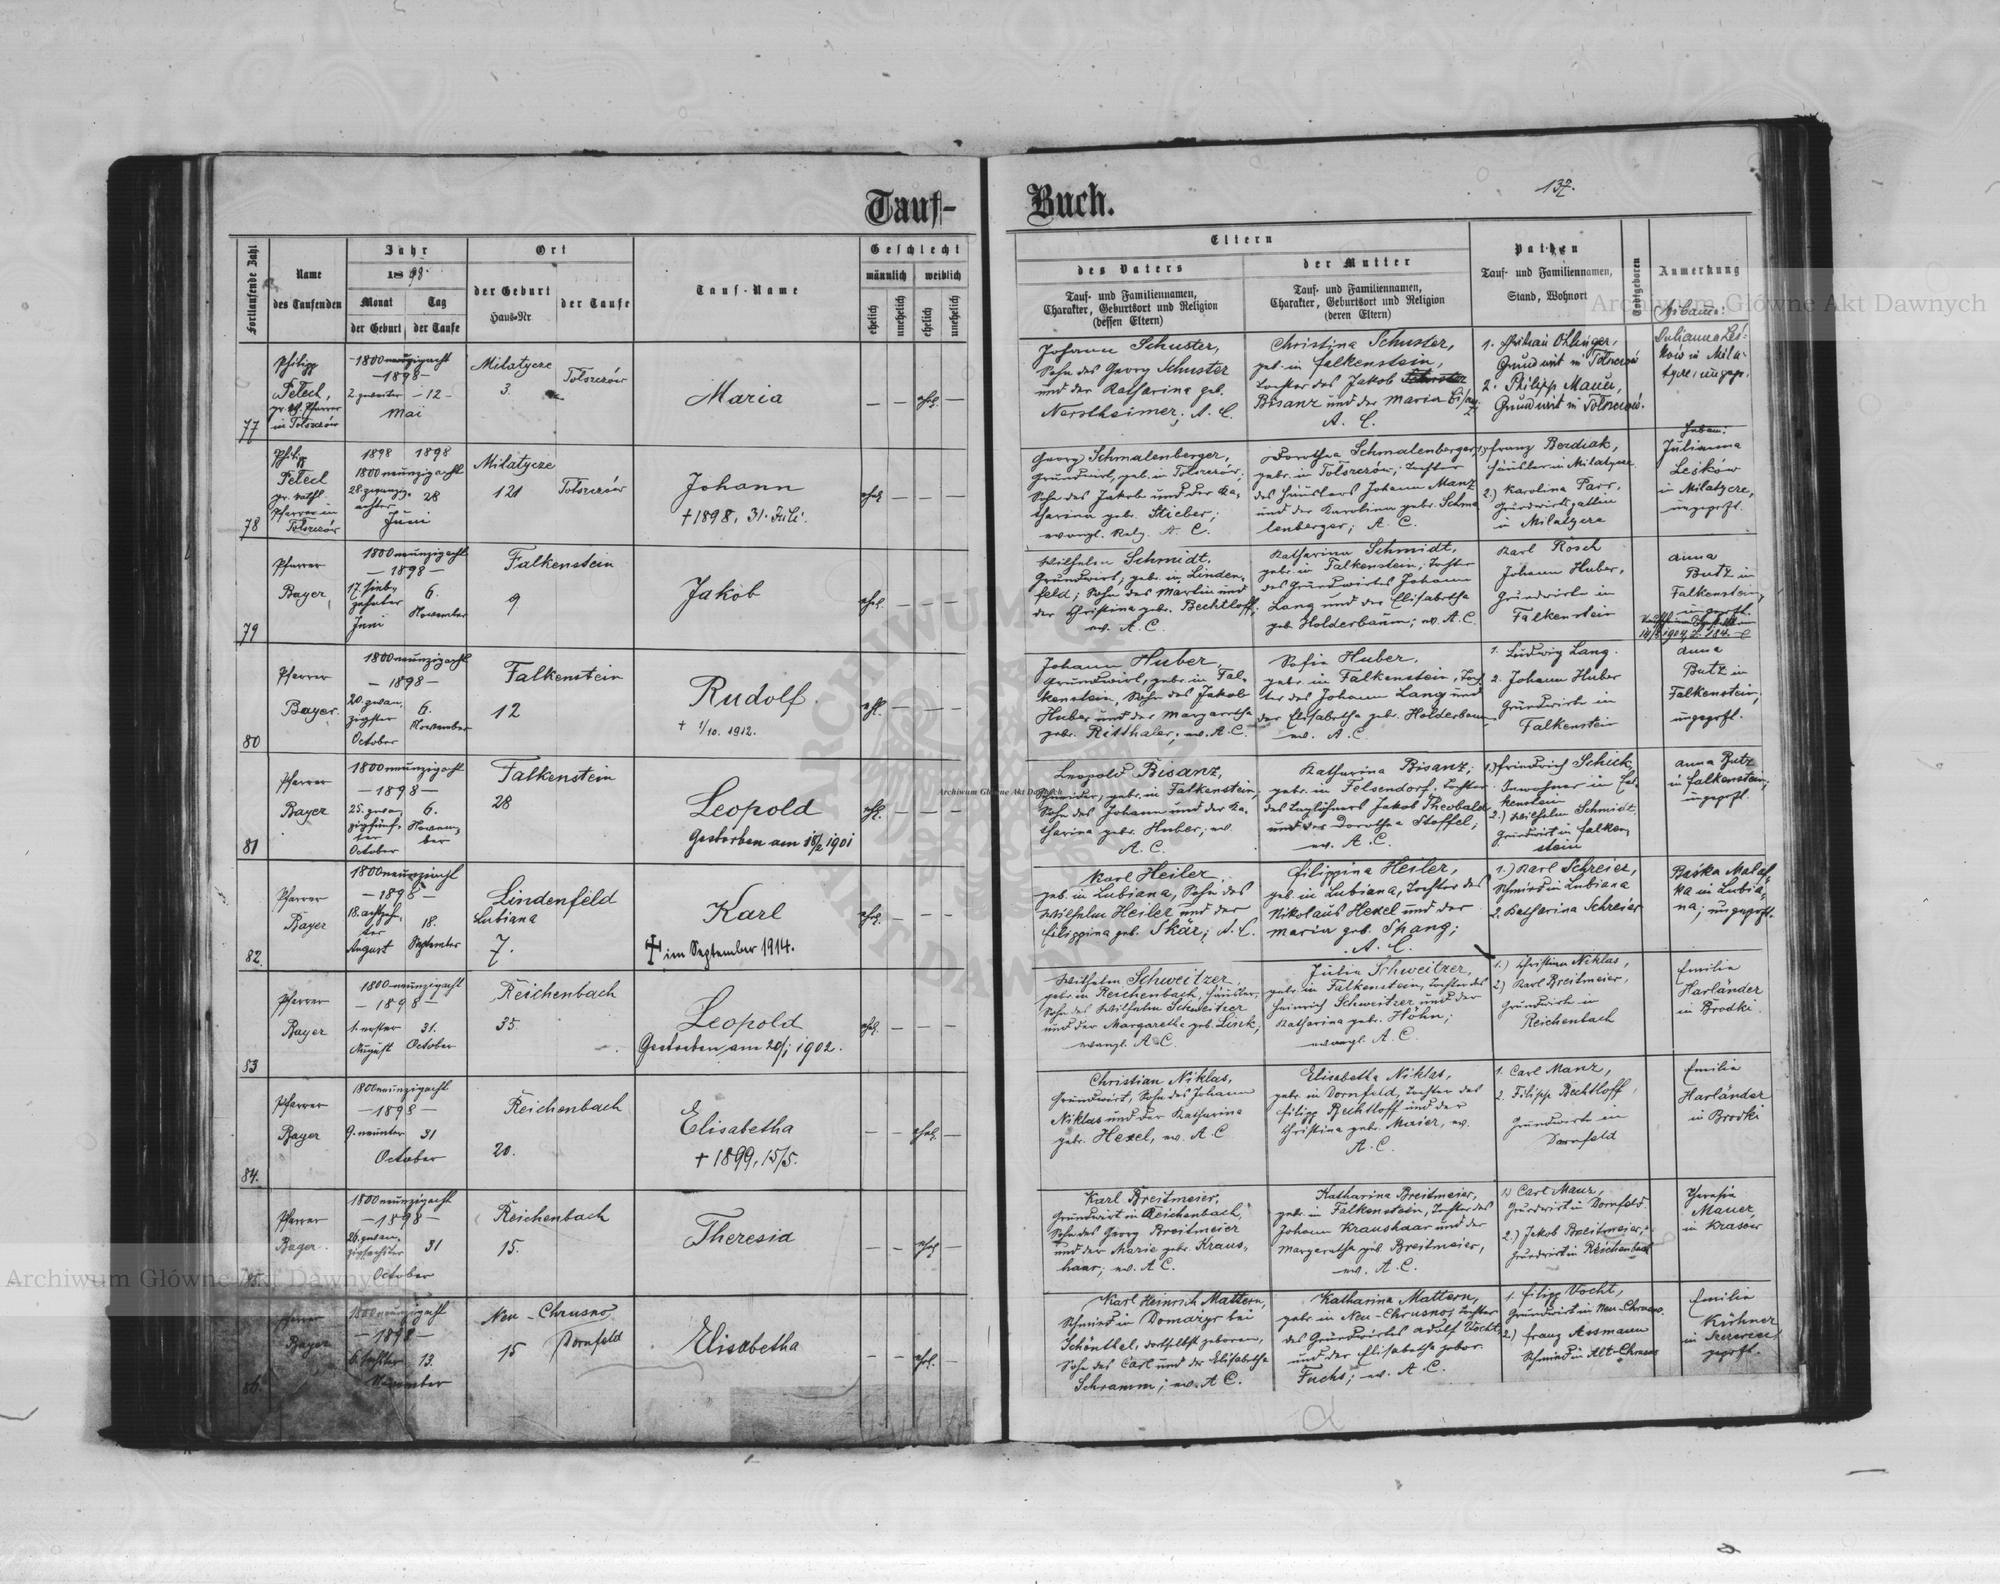 Tauf-
Buch.
137.
Fortlaufende Zahl
Name
des Taufenden
Jahr
1898.
Monat
Tag
der Geburt
der Taufe
Ort
der Geburt
Haus-Nr.
der Taufe
Tauf-Name
Geschlecht
männlich
weiblich
ehelich
unehelich
ehelich
unehelich
Eltern
des Vaters
Tauf- und Familiennamen,
Charakter, Geburtsort und Religion
(dessen Eltern)
der Mutter
Tauf- und Familiennamen,
Charakter, Geburtsort und Religion
(deren Eltern)
Pathen
Tauf- und Familiennamen,
Stand, Wohnort
Todtgeboren
Anmerkung
77
Philipp
Petech,
gr. kth. Pfarrer
in Tołszczów
1800neunzigacht
-1898-
2. zweiter -12-
Mai
Milatycze
3.
Tołszczów
Maria
— — ehel. —
Johann Schuster,
Sohn des Georg Schuster
und der Katharina geb.
A. C.
Christina Schuster,
geb. in Falkenstein,
Tochter des Jakob
Bisanz und der Maria
A. C.
Grundwirt in Tołszczów
2. Philipp Mauer,
Grundwirt in Tołszczów.
Hebame:
Julianna Les-
ków in Mila-
tycze; ungepr.
78
Petech
Pfarrer in
Tołszczów
1898 1898
1800neunzigacht
28. zwanzig-
achter 28
Juni
Milatycze
121
Tołszczów
Johann
†1898, 31. Juli.
ehel. — — —
Georg Schmalenberger,
Grundwirt, geb. in Tołszczów;
Sohn des Jakob und der Ka-
tharina geb. Stieber;
evangl. Relg. A. C.
Dorothea Schmalenberger,
gebr. in Tołszczów, Tochter
des Häuslers Johann Manz
und der Karolina gebr. Schma
lenberger; A. C.
1.) Franz Berdiak,
Häusler in Milatycze
2.) Karolina Parr,
Grundwirtsgattin
in Milatycze
Hebam:
Julianna
Lesków
in Milatycze,
ungeprft.
79
Pfarrer
Bayer,
1800neunzigacht
-1898-
17. sieb-
zehnter 6.
Juni November
Falkenstein
9
Jakob
ehel. — — —
Wilhelm Schmidt,
Grundwirt, gebr. in Linden-
feld; Sohn des Martin und
der Christina gebr. Bechtloff;
ev. A. C.
Katharina Schmidt,
gebr. in Falkenstein, Tochter
des Grundwirtes Johann
Lang und der Elisabetha
geb. Holderbaum; ev. A. C.
Karl Rösch
Johann Huber,
Grundwirte in
Falkenstein
Anna
Butz in
Falkenstein,
ungeprft.
80
Pfarrer
Bayer.
1800neunzigacht
-1898-
20. zwan-
zigster 6.
October November
Falkenstein
12
Rudolf.
† 1/10. 1912.
ehl. — — —
Johann Huber,
Grundwirt, gebr. in Fal-
kenstein, Sohn des Jakob
Huber und der Margaretha
gebr. Ritthaler; ev. A. C.
Sofia Huber,
gebr. in Falkenstein, Toch
ter des Johann Lang und
der Elisabetha gebr. Holderbaum
ev. A. C.
1. Ludwig Lang.
2. Johann Huber
Grundwirte in
Falkenstein
Anna
Butz in
Falkenstein;
ungeprft.
81
Pfarrer
Bayer
1800neunzigacht
-1898-
25. zwan-
zigfünf- 6.
ter Novem-
October ber
Falkenstein
28
Leopold
Gestorben am 18/2 1901
ehl. — — —
Leopold Bisanz,
Schneider, gebr. in Falkenstein,
Sohn des Johann und der Ka-
tharina gebr. Huber; ev.
A. C.
Katharina Bisanz;
gebr. in Felsendorf, Tochter
des Taglöhners Jakob Theobald
und der Dorothea Stoffel;
ev. A. C.
1.) Friedrich Schick,
Inwohner in Fal-
kenstein
2.) Wilhelm Schmidt,
Grundwirt in Falken-
stein
Anna Butz
in Falkenstein;
ungeprft.
82.
Pfarrer
Bayer
1800neunzigacht
-1898-
18. achtzehn-
ter 18.
August September
Lindenfeld
Lubiana
7.
Karl
im September 1914.
ehel. — — —
Karl Heiler,
geb. in Lubiana, Sohn des
Wilhelm Heiler und der
Filippina geb. Skär; A. C.
Filippina Heiler,
geb. in Lubiana, Tochter des
Nikolaus Hexel und der
Maria geb. Spang;
A. C.
1.) Karl Schreier,
Schmied in Lubiana
2. Katharina Schreier
in Lubia-
na; ungeprft.
83
Pfarrer
Bayer
1800neunzigacht
-1898-
1. erster 31.
August October
Reichenbach
35.
Leopold
Gestorben am 20/1 1902.
ehel. — — —
Wilhelm Schweitzer
gebr. in Reichenbach, Häusler,
Sohn des Wilhelm Schweitzer
und der Margaretha geb. Linck,
evangl. A. C.
Julia Schweitzer,
gebr. in Falkenstein, Tochter des
Heinrich Schweitzer und der
Katharina gebr. Höhn;
evangl. A. C.
1.) Christian Niklas,
2.) Karl Breitmeier,
Grundwirte in
Reichenbach
Emilia
Harländer
in Brodki
84.
Pfarrer
Bayer
1800neunzigacht
-1898-
9. neunter 31
October
Reichenbach
20.
Elisabetha
† 1899, 15/5.
— — ehel. —
Christian Niklas,
Grundwirt, Sohn des Johann
Niklas und der Katharina
gebr. Hexel, ev. A. C.
Elisabetha Niklas,
gebr. in Dornfeld, Tochter des
Filipp Bechtloff und der
Christina gebr. Maier, ev.
A. C.
1. Carl Manz,
2. Filipp Bechtloff,
Grundwirte in
Dornfeld
Emilia
Harländer
in Brodki
85.
Pfarrer
Bayer.
1800neunzigacht
-1898-
26. zwan-
zigsechster 31
October
Reichenbach
15.
Theresia
— — ehel —
Karl Breitmeier,
Grundwirt in Reichenbach,
Sohn des Georg Breitmeier
und der Marie gebr. Kraus-
haar; ev. A. C.
Katharina Breitmeier,
gebr. in Falkenstein, Tochter des
Johann Kraushaar und der
Margaretha geb. Breitmeier,
ev. A. C.
1.) Carl Manz,
Grundwirt in Dornfeld
2.) Jakob Breitmeier,
Grundwirt in Reichenbach
Theresia
Mauer
in Krasów
86.
Pfarrer
Bayer
1800neunzigacht
-1898-
6. sechster 13.
November
Neu-Chrusno
15
Dornfeld
Elisabetha
— — ehel. —
Karl Heinrich Mattern,
Schmied in Domazyr bei
Schönthal, dortselbst geboren,
Sohn des Carl und der Elisabetha
Schramm; ev. A. C.
Katharina Mattern,
gebr. in Neu-Chrusno, Tochter
des Grundwirtes Adolf Vocht,
und der Elisabetha gebor.
Fuchs; ev. A. C.
1. Filipp Vocht,
Grundwirt in Neu-Chrusno.
2.) Franz Assmann
Schmied in Alt-Chrusno
Emilia
Kühner
in Szczerzec
geprft.
Archiwum Główne Akt Dawnych
Archiwum Główne Akt Dawnych
Archiwum Główne Akt Dawnych
ARCHIWUM
AKT DAWNYCH